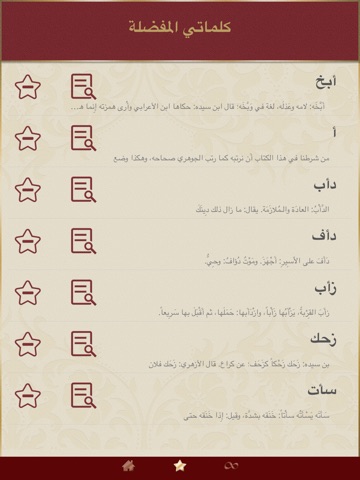 كلماتي المفضلة
أبخ
أبَّخَه: لامه وعَذَله، لغة في وَبَّخَه؛ قال ابن سيده: حكاها ابن الأعرابي وأرى همزته إنما هـ...
أ
من شرطنا في هذا الكتاب أن نرتبه كما رتب الجوهري صحاحه، وهكذا وضع
دأب
الدَّأْبُ: العادَة والمُلازَمَة. يقال: ما زال ذلك دِينَكَ
دأف
دَأَفَ على الأَسير: أَجْهَزَ. ومَوْتٌ دُؤافٌ: وَحِيٌّ.
زأب
زَأَبَ القِرْبَةَ، يَزْأَبُها زَأْباً، وازْدَأَبها: حَمَلَها، ثم أَقْبَلَ بها سَريعاً.
زحك
بن سيده: زَحَكَ زَحْكاً كزَحَفَ؛ عن كراع. قال الأزهري: زَحَكَ فلان
سأت
سأَتَه يَسْأَتُه سأْتاً: خَنَقَه بشدّة، وقيل: إذا خَنَقَه حتى